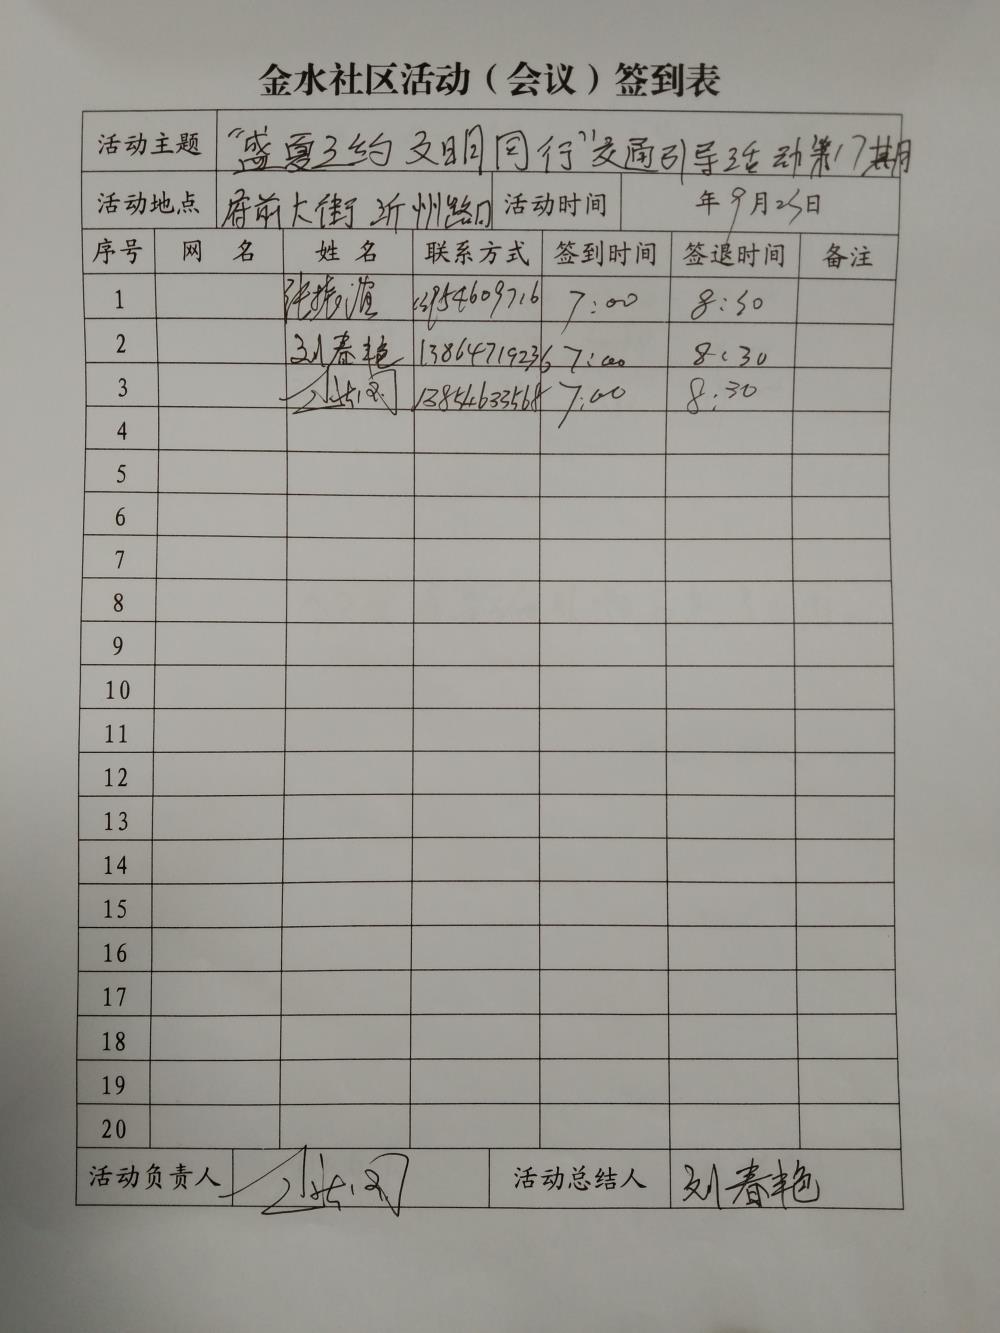 金水社区活动（会议）签到表
活动主题 "盛夏之约 文明同行"交通引导活动第17期
活动地点 府前大街 沂州路口 活动时间 年9月25日
序号 网 名 姓 名 联系方式 签到时间 签退时间 备注
1 张振 13954609716 7:00 8:30
2 刘春艳 13864719236 7:00 8:30
3 13854633568 7:00 8:30
4
5
6
7
8
9
10
11
12
13
14
15
16
17
18
19
20
活动负责人 活动总结人 刘春艳